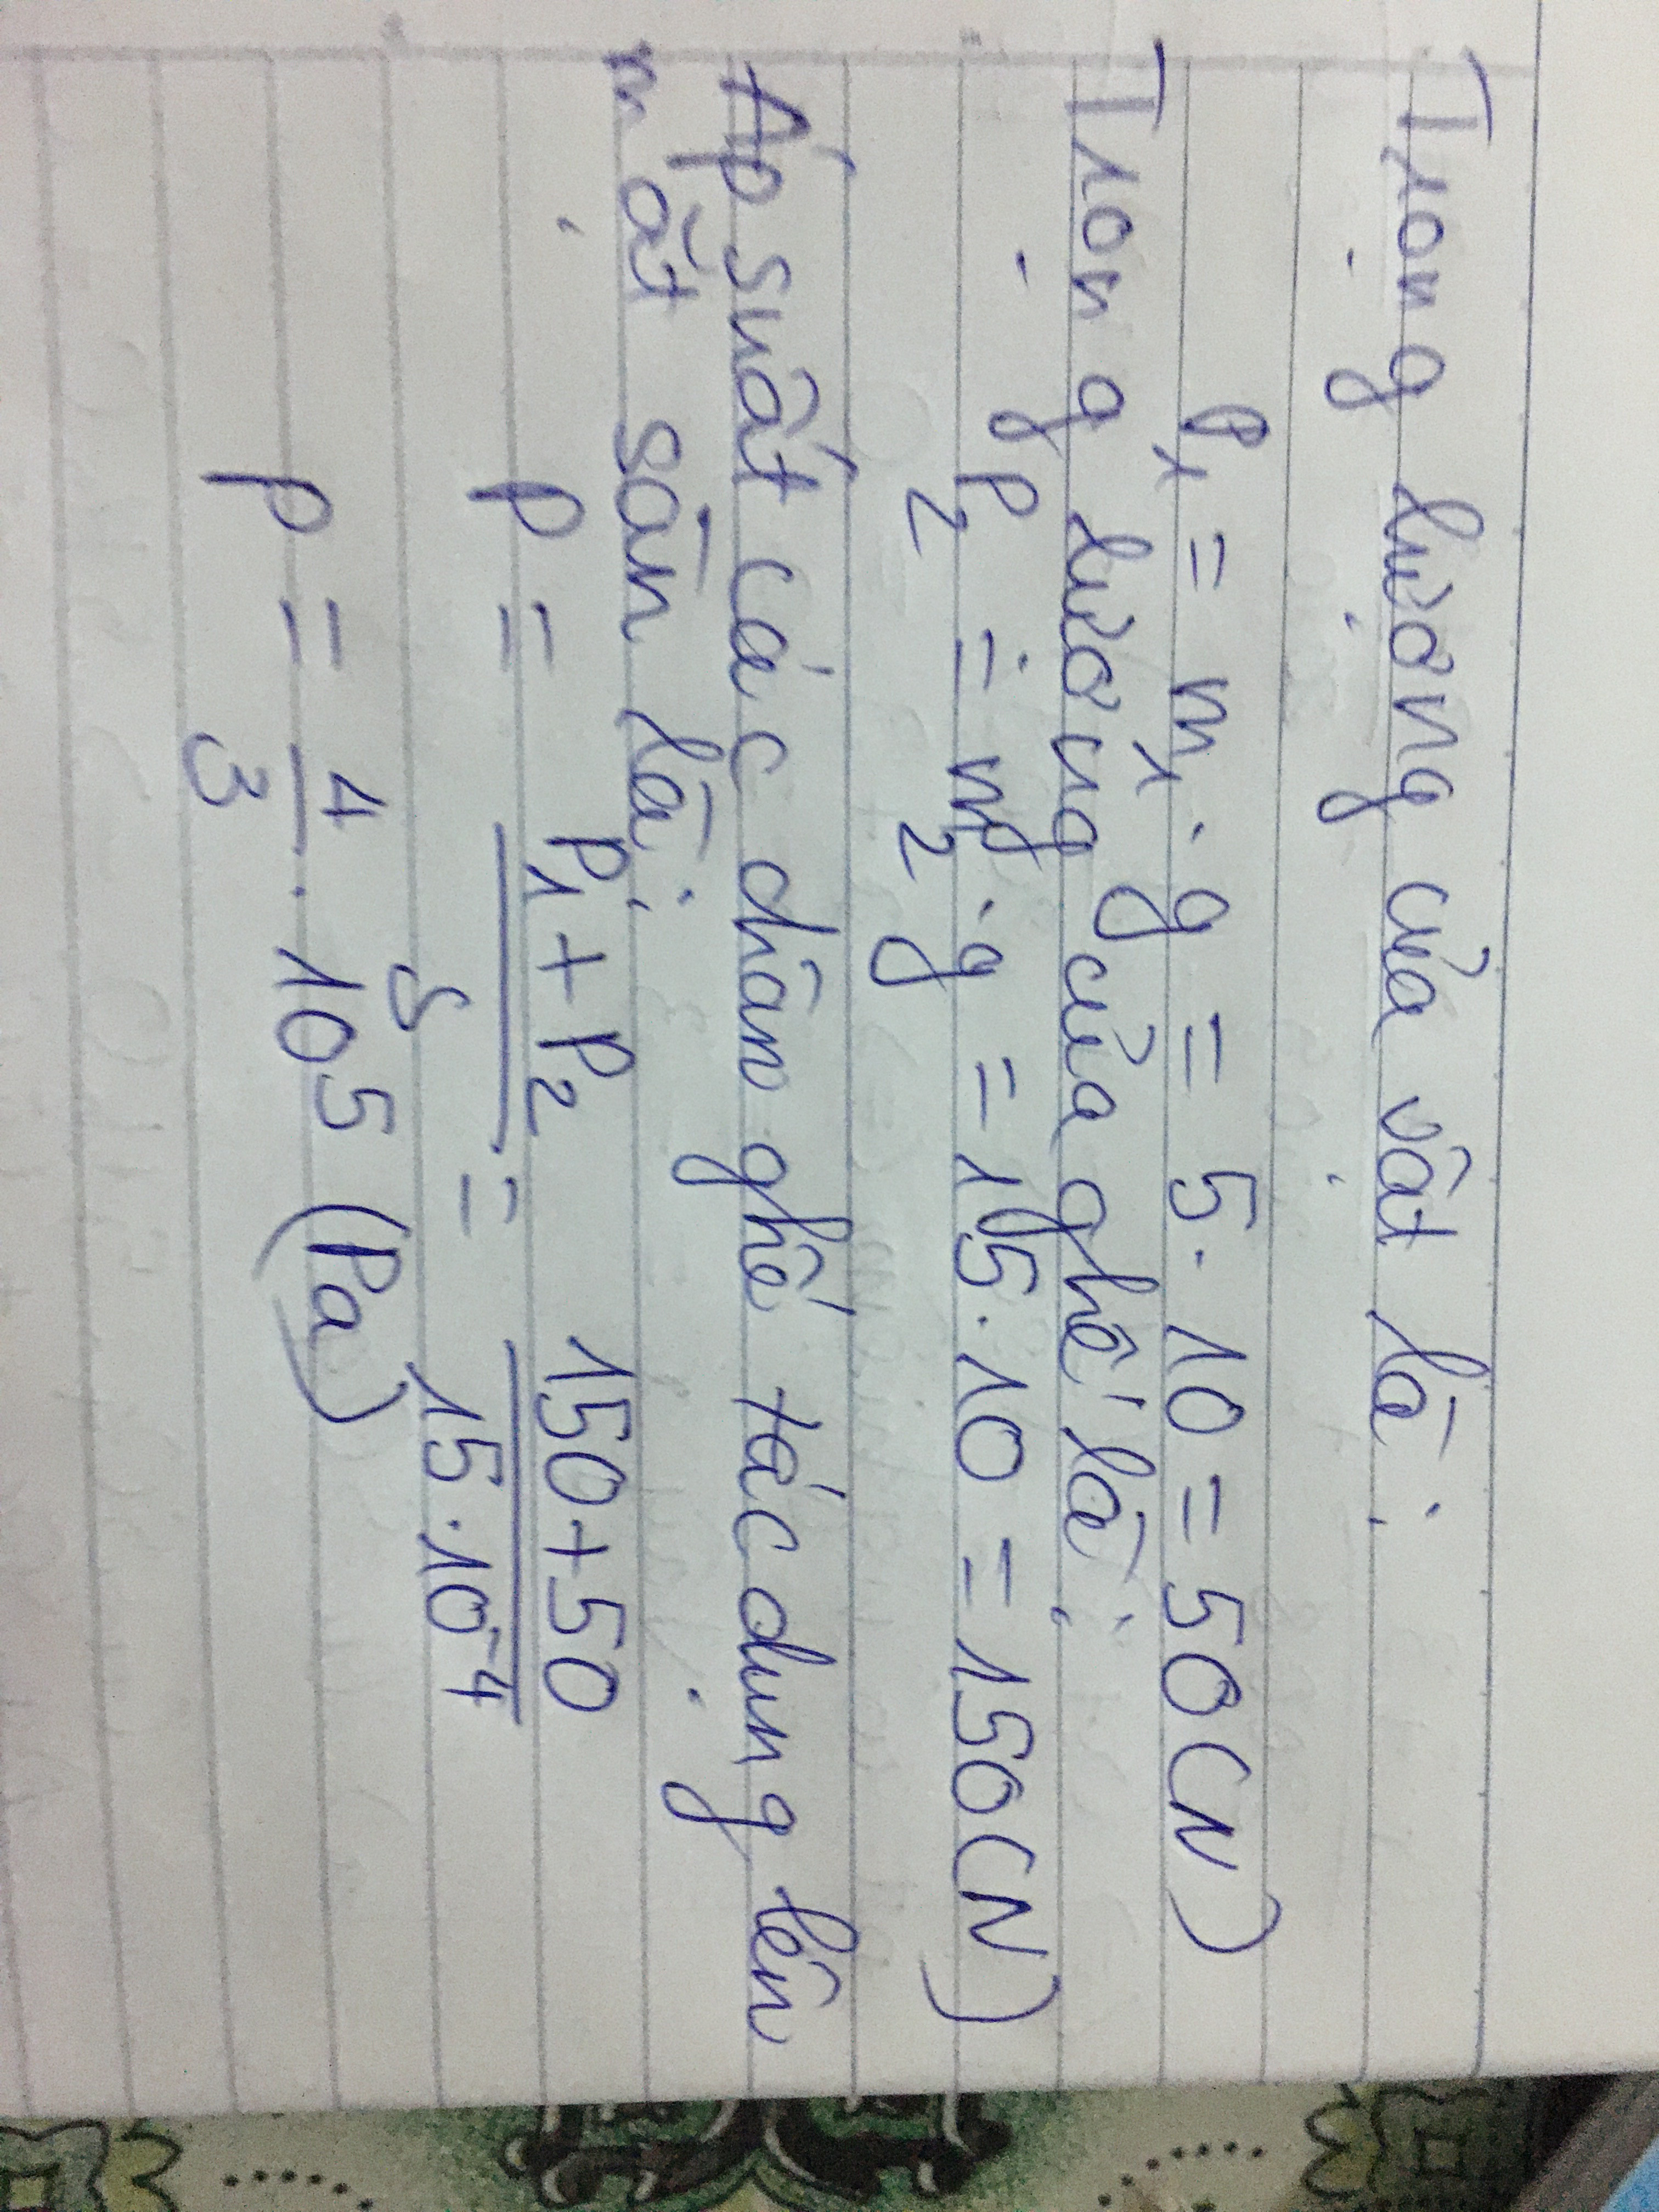 Trọng lượng của vật là:
P₁ = m₁.g = 5.10 = 50(N)
Trọng lượng của ghế là:
P₂ = m₂.g = 15.10 = 150(N)
Áp suất các chân ghế tác dụng lên
mặt sàn là:
p = \frac{P₁ + P₂}{S} = \frac{150 + 50}{15.10⁻⁴}
p = \frac{4}{3}.10⁵ (Pa)